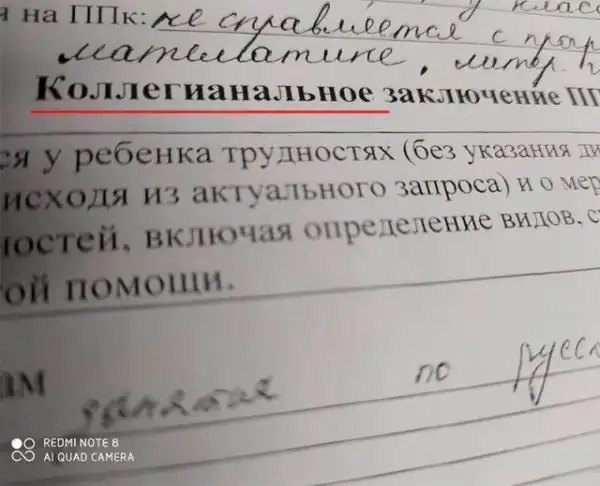 на ППк: не справляется с прог
математике, литер.
Коллегианальное заключение ПП
ся у ребенка трудностях (без указания ди
исходя из актуального запроса) и о мер
ностей, включая определение видов, с
ой помощи.
ам занятия по русск
REDMI NOTE 8
AI QUAD CAMERA